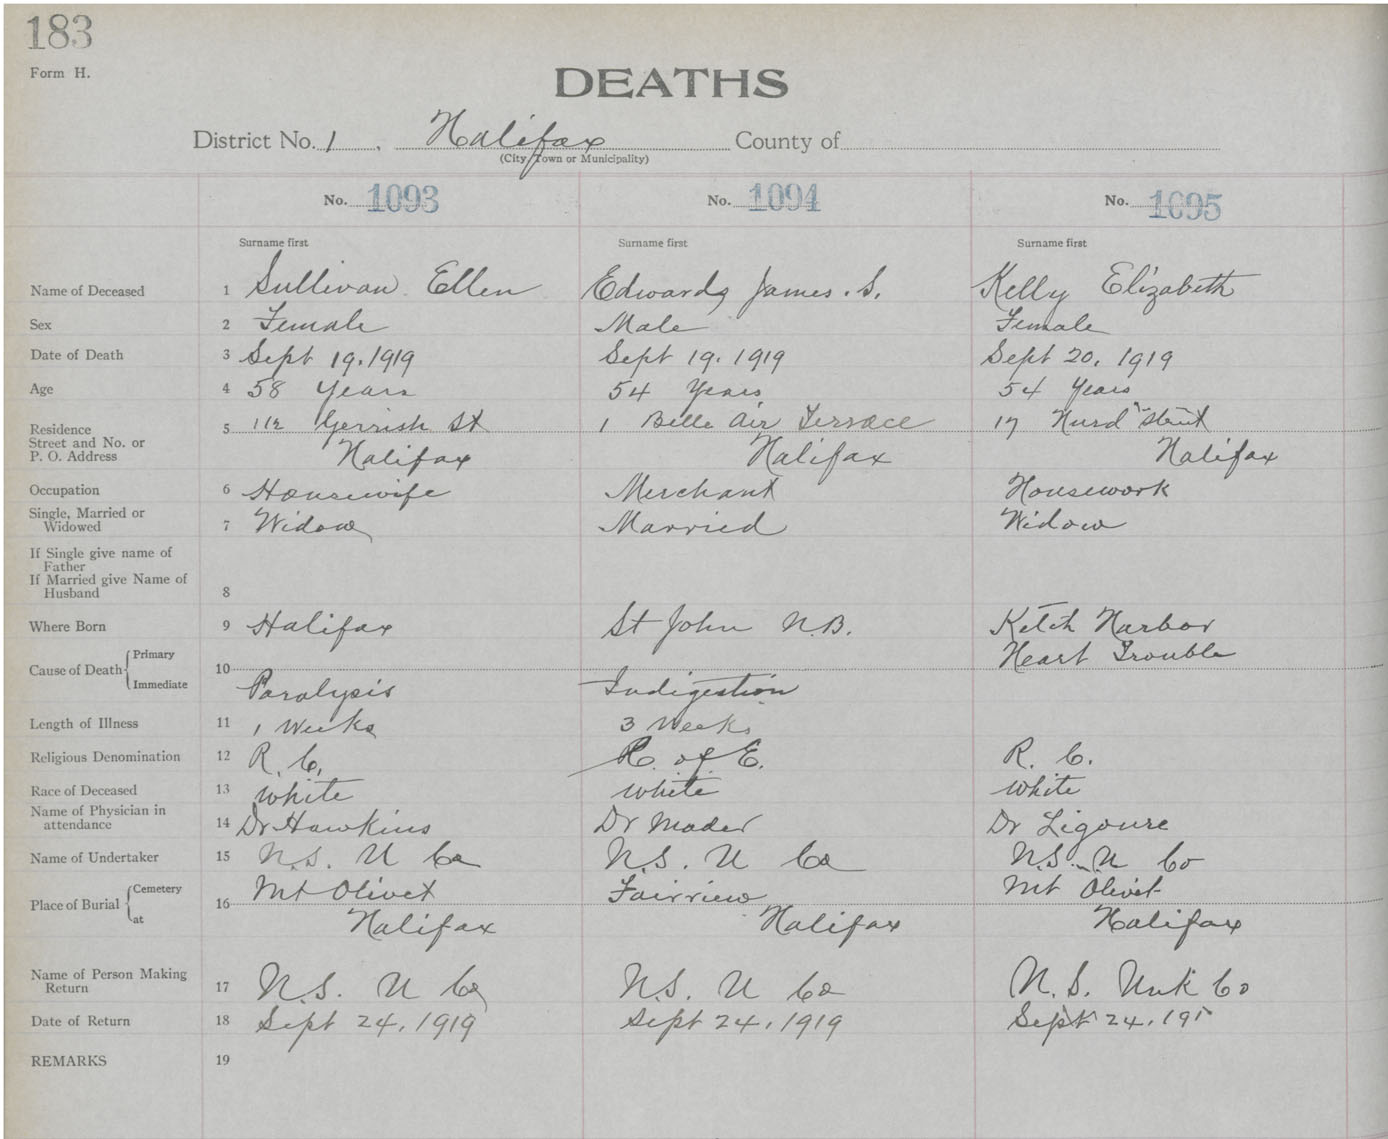 183
Form H.
DEATHS
District No. 1, Halifax County of
(City, Town or Municipality)
No. 1093 No. 1094 No. 1095
Surname first Surname first Surname first
Name of Deceased 1 Sullivan Ellen Edwards James. S. Kelly Elizabeth
Sex 2 Female Male Female
Date of Death 3 Sept 19, 1919 Sept 19. 1919 Sept 20, 1919
Age 4 58 Years 54 Years 54 Years
Residence 5 112 Gerrish St 1 Belle Air Terrace 17 Hurd Street
Street and No. or
P. O. Address Halifax Halifax Halifax
Occupation 6 Housewife Merchant Housework
Single, Married or
Widowed 7 Widow Married Widow
If Single give name of
Father
If Married give Name of
Husband 8
Where Born 9 Halifax St John N.B. Ketch Harbor
Cause of Death Primary Heart Trouble
10
Immediate Paralysis Indigestion
Length of Illness 11 1 Weeks 3 Weeks
Religious Denomination 12 R. C. C. of E. R. C.
Race of Deceased 13 white white white
Name of Physician in
attendance 14 Dr Hawkins Dr Mader Dr Ligoure
Name of Undertaker 15 N.S. U Co N.S. U Co N.S. U Co
Place of Burial Cemetery Mt Olivet Fairview Mt Olivet
16
at Halifax Halifax Halifax
Name of Person Making
Return 17 N.S. U Co N.S. U Co N.S. Unk Co
Date of Return 18 Sept 24, 1919 Sept 24, 1919 Sept 24, 191
REMARKS 19